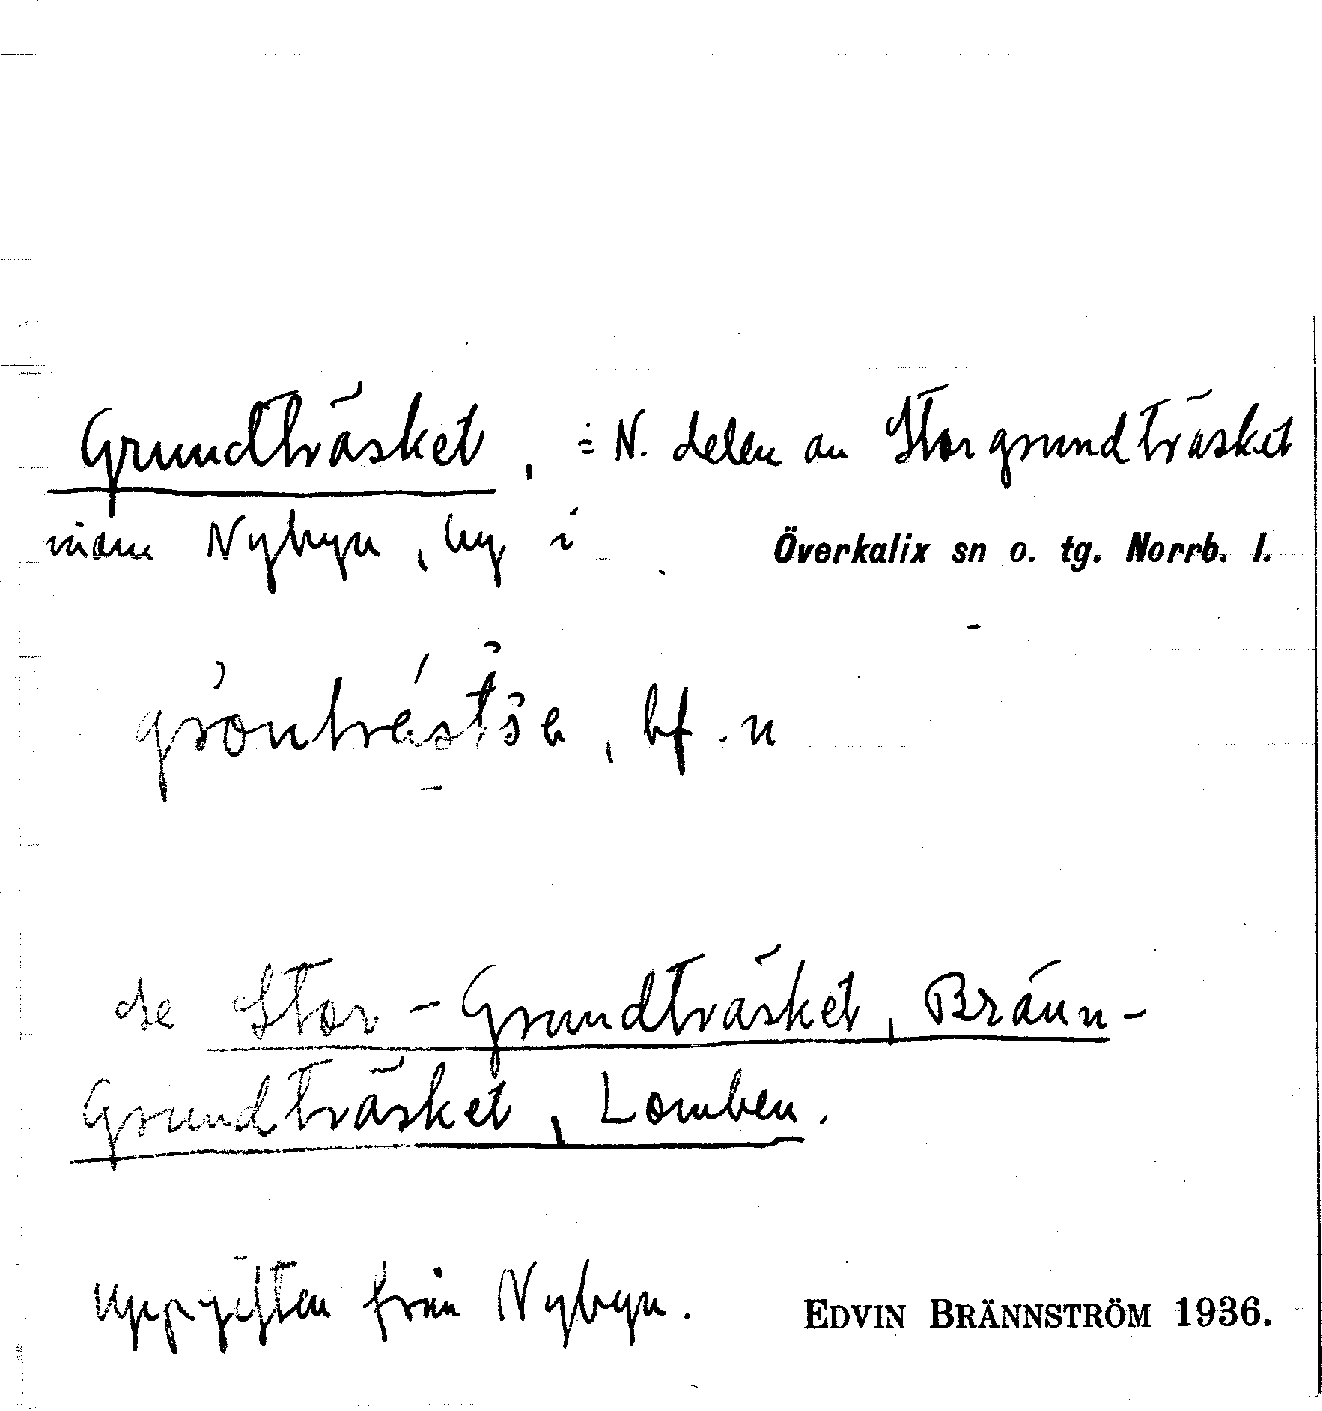 Grundträsket, = N. delen av Storgrundträsket
inom Nybyn, by i Överkalix sn o. tg. Norrb. l.
bf. n
se Stor-Grundträsket, Bränn-
Grundträsket, Lomben.
Uppgiften från Nybyn. EDVIN BRÄNNSTRÖM 1936.